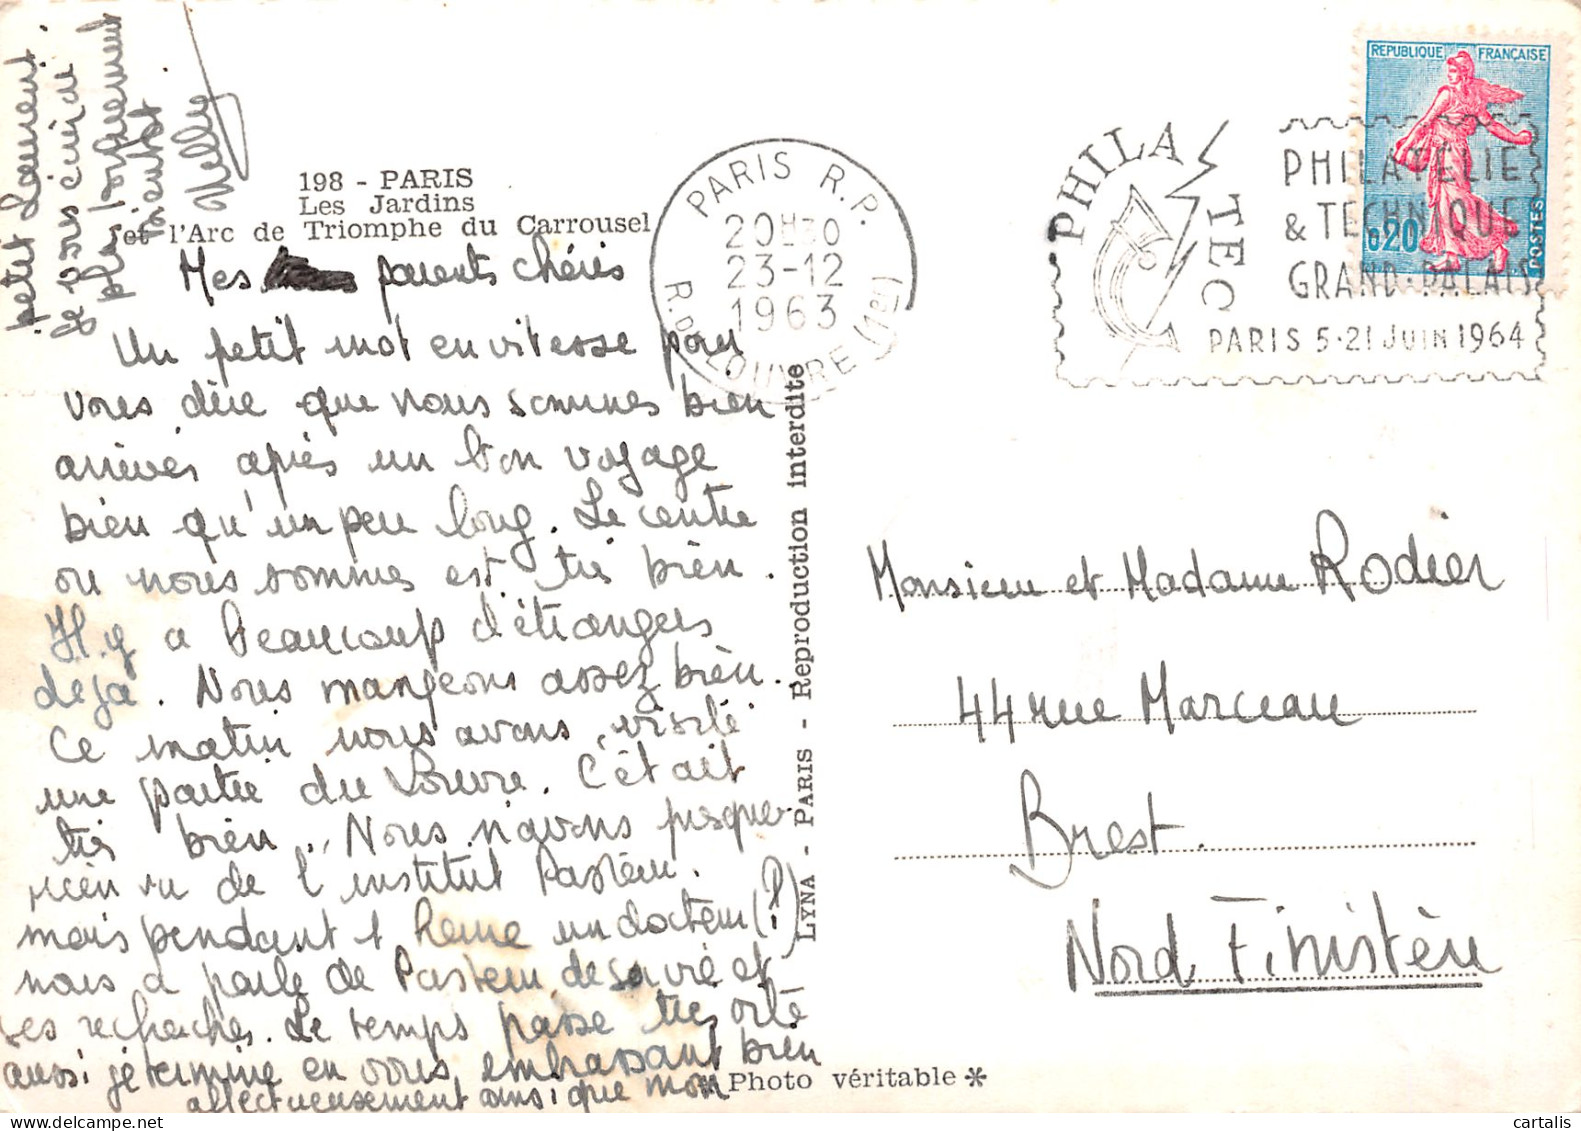 198 - PARIS
Les Jardins
et l'Arc de Triomphe du Carrousel
Mes parents chéris
Un petit mot en vitesse pour
vous dire que nous sommes bien
arrivés après un bon voyage
bien qu'un peu long. Le centre
ou nous sommes est très bien.
Il y a beaucoup d'étrangers
deja. Nous mangeons assez bien.
Ce matin nous avons visité
une partie du Louvre. C'était
très bien. Nous n'avons presque
rien vu de l'institut Pasteur.
mais pendant 1 heure un docteur (?)
nous a parlé de Pasteur de sa vie et
ses recherches. Le temps passe très vite
aussi je termine en vous embrassant bien
affectueusement ainsi que mon
petit Laurent.
Je vous écrirai
plus longuement
bientôt
Nelly
LYNA - PARIS - Reproduction interdite
Photo véritable
PARIS R.P.
20H30
23-12
1963
R. DU LOUVRE (1er)
PHILATEC
PHILATÉLIE
& TECHNIQUE
GRAND-PALAIS
PARIS 5-21 JUIN 1964
REPUBLIQUE FRANÇAISE
0,20
POSTES
Monsieur et Madame Rodier
44 rue Marceau
Brest.
Nord Finistère
cartalis